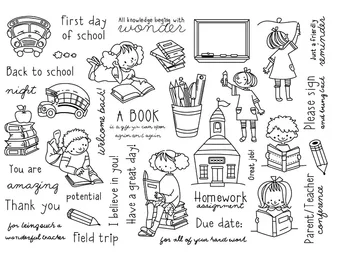 First day
of school
All knowledge begins with
wonder
Just a friendly
reminder
Back to school
night
welcome back!
A BOOK
is a gift you can open
again and again
Please sign
and bring back
You are
amazing
Thank you
for being such a
wonderful teacher
potential
Field trip
I believe in you!
Have a great day!
Great job!
Homework
assignment
Due date:
for all of your hard work
Parent/Teacher
conference